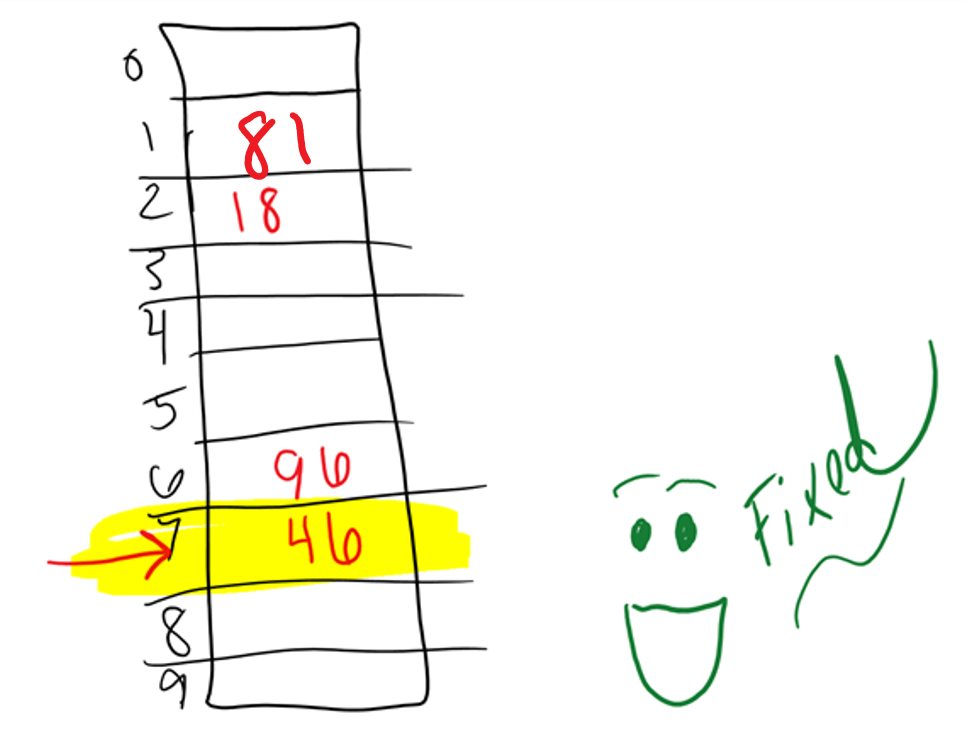 0
1 81
2 18
3
4
5
6 96
7 46
8
9
Fixed